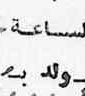 لساعة
ولد بـ